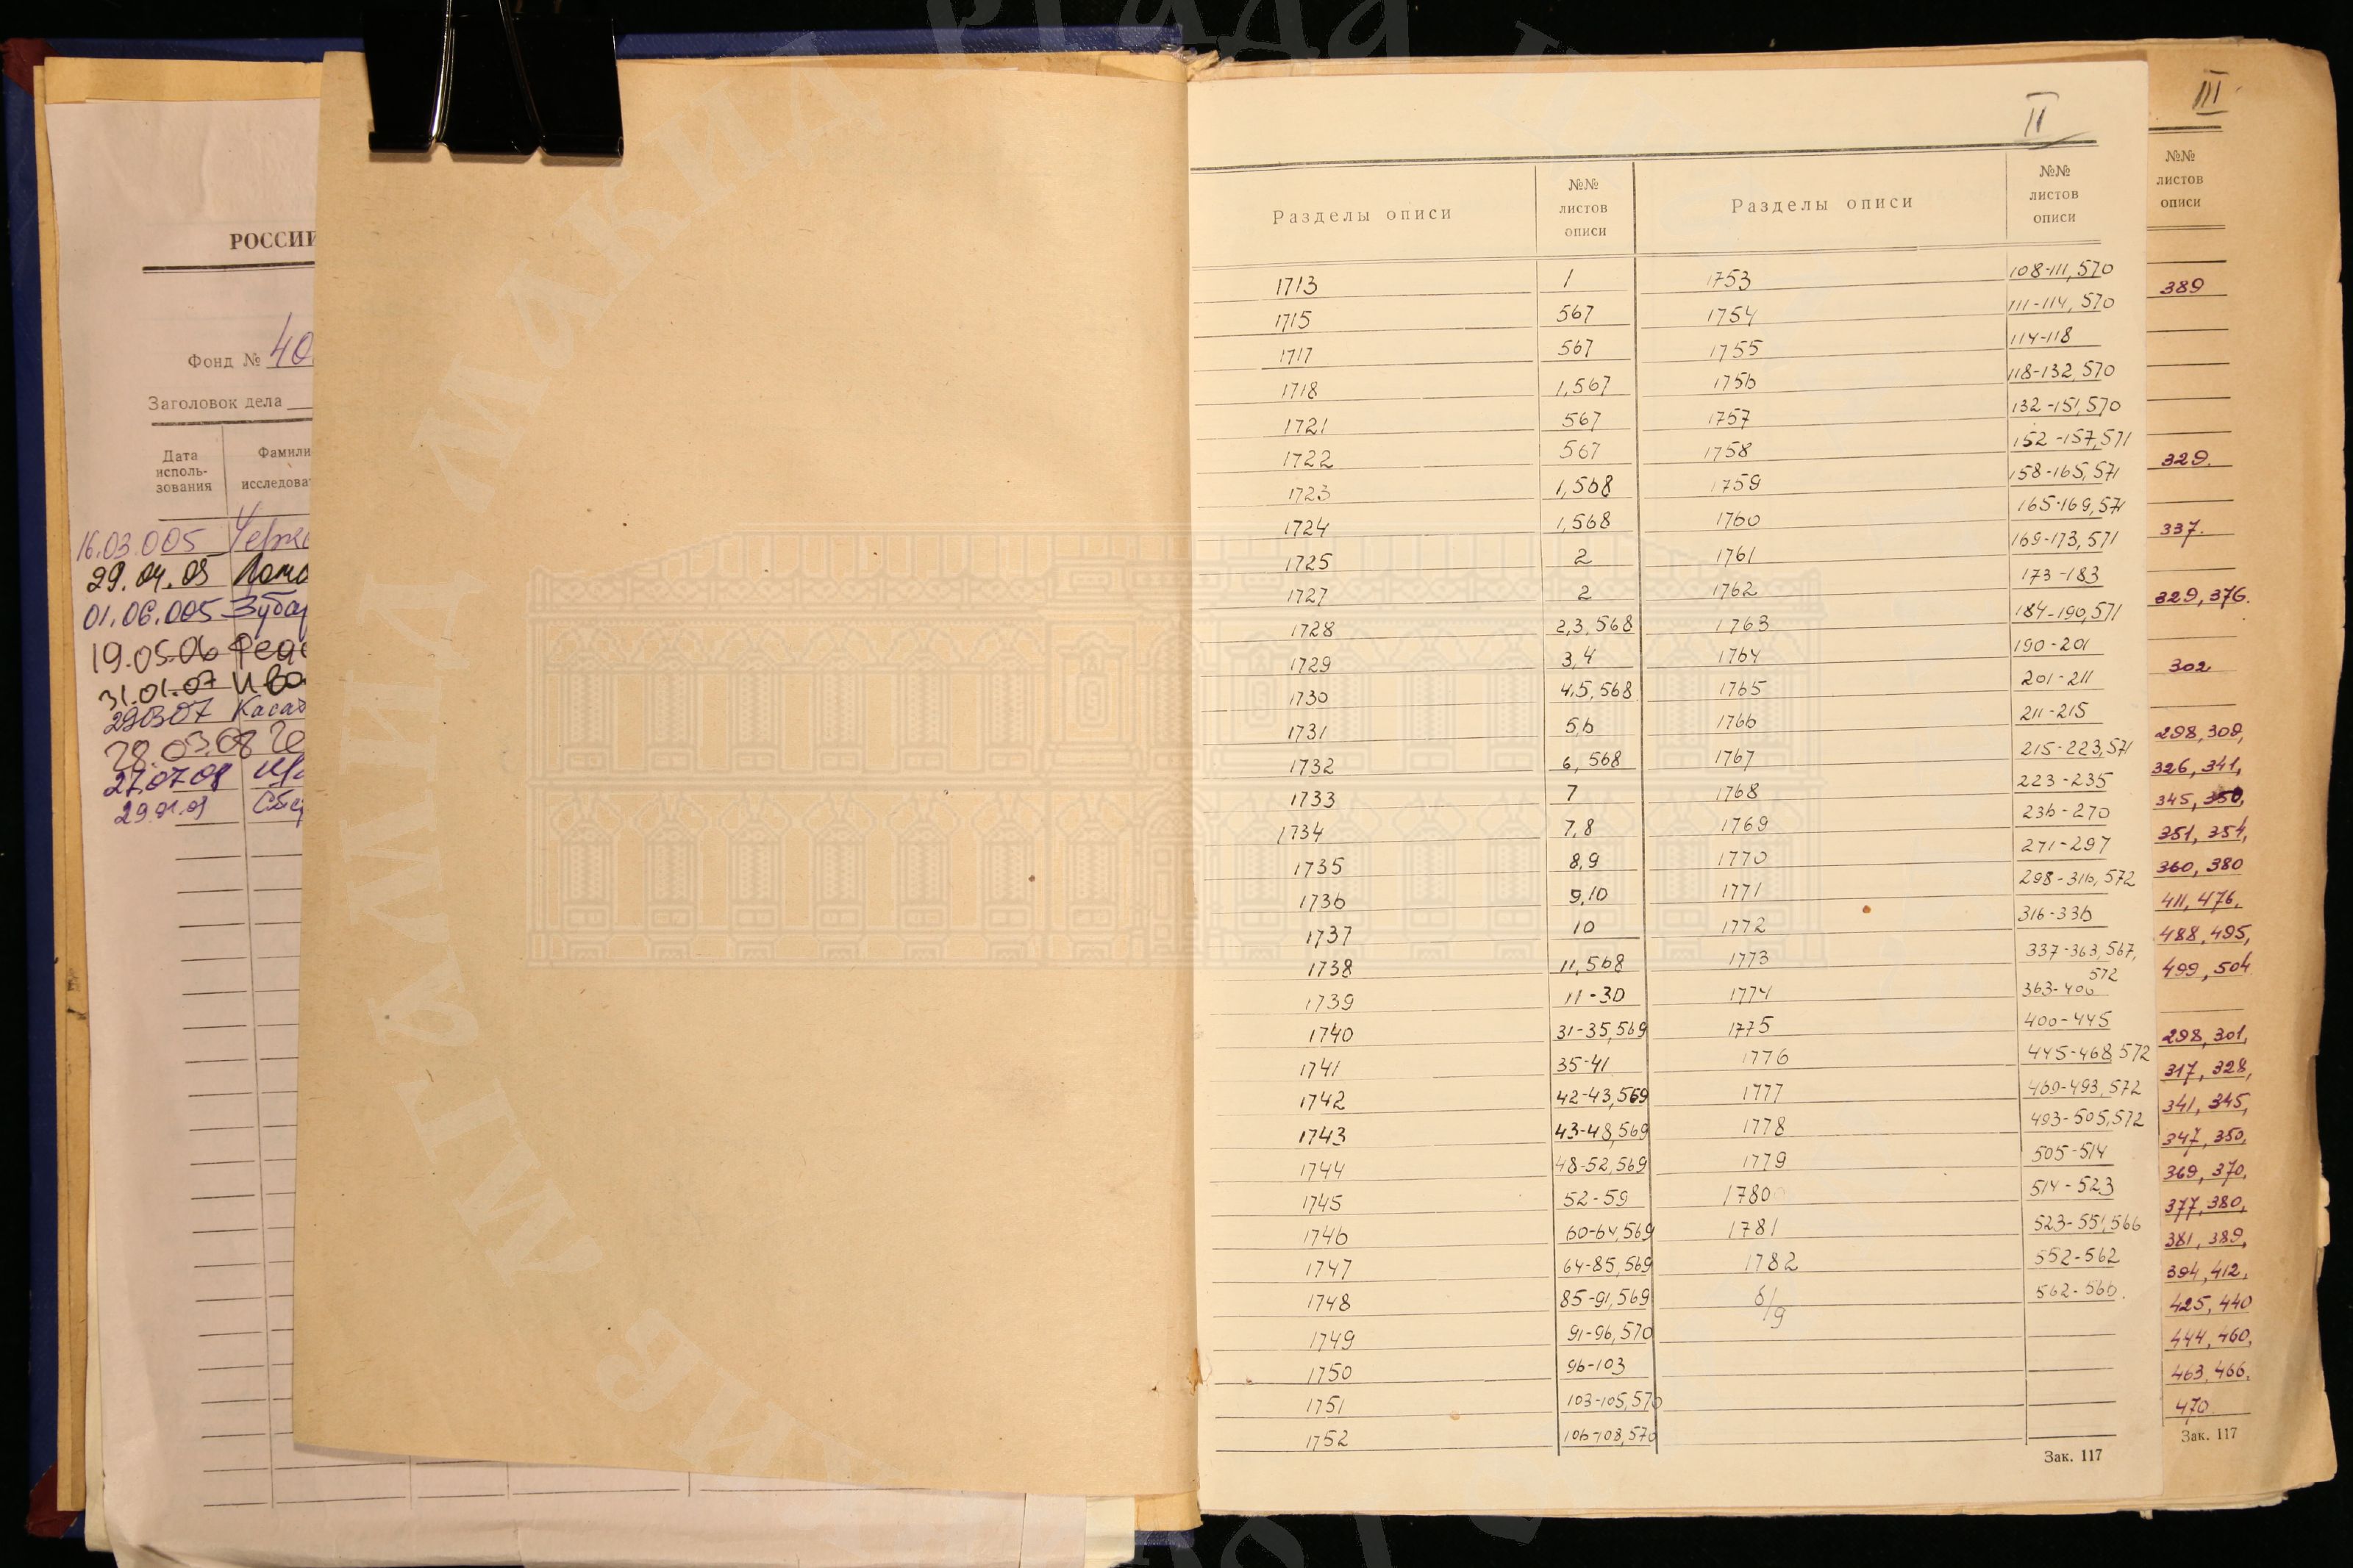 РОССИ
Фонд №
Заголовок дела
Дата
исполь-
зования
Фамили
исследова
16.03.005
29.04.05
01.06.005
19.05.06
31.01.07
29.03.07
28.03.08
27.07.08
II
Разделы описи
№№
листов
описи
Разделы описи
№№
листов
описи
1713 1 1753 108-111, 570
1715 567 1754 111-114, 570
1717 567 1755 114-118
1718 1,567 1756 118-132, 570
1721 567 1757 132-151, 570
1722 567 1758 152-157, 571
1723 1,568 1759 158-165, 571
1724 1,568 1760 165-169, 571
1725 2 1761 169-173, 571
1727 2 1762 173-183
1728 2,3,568 1763 184-190, 571
1729 3,4 1764 190-201
1730 4,5,568 1765 201-211
1731 5,6 1766 211-215
1732 6, 568 1767 215-223, 571
1733 7 1768 223-235
1734 7,8 1769 236-270
1735 8,9 1770 271-297
1736 9,10 1771 298-316, 572
1737 10 1772 316-336
1738 11,568 1773 337-363, 567,
572
1739 11-30 1774 363-400
1740 31-35,569 1775 400-445
1741 35-41 1776 445-468, 572
1742 42-43,569 1777 469-493, 572
1743 43-48,569 1778 493-505, 572
1744 48-52,569 1779 505-514
1745 52-59 1780 514-523
1746 60-64,569 1781 523-551, 566
1747 64-85,569 1782 552-562
1748 85-91,569 б/д 562-566.
1749 91-96,570
1750 96-103
1751 103-105,570
1752 106-108,570
Зак. 117
III
№№
листов
описи
389
329.
337.
329, 376.
302
298, 309,
326, 341,
345, 350,
351, 354,
360, 380
411, 476,
488, 495,
499, 504
298, 301,
317, 328,
341, 345,
347, 350,
369, 370,
377, 380,
381, 389,
394, 412,
425, 440
444, 460,
463, 466,
470
Зак. 117